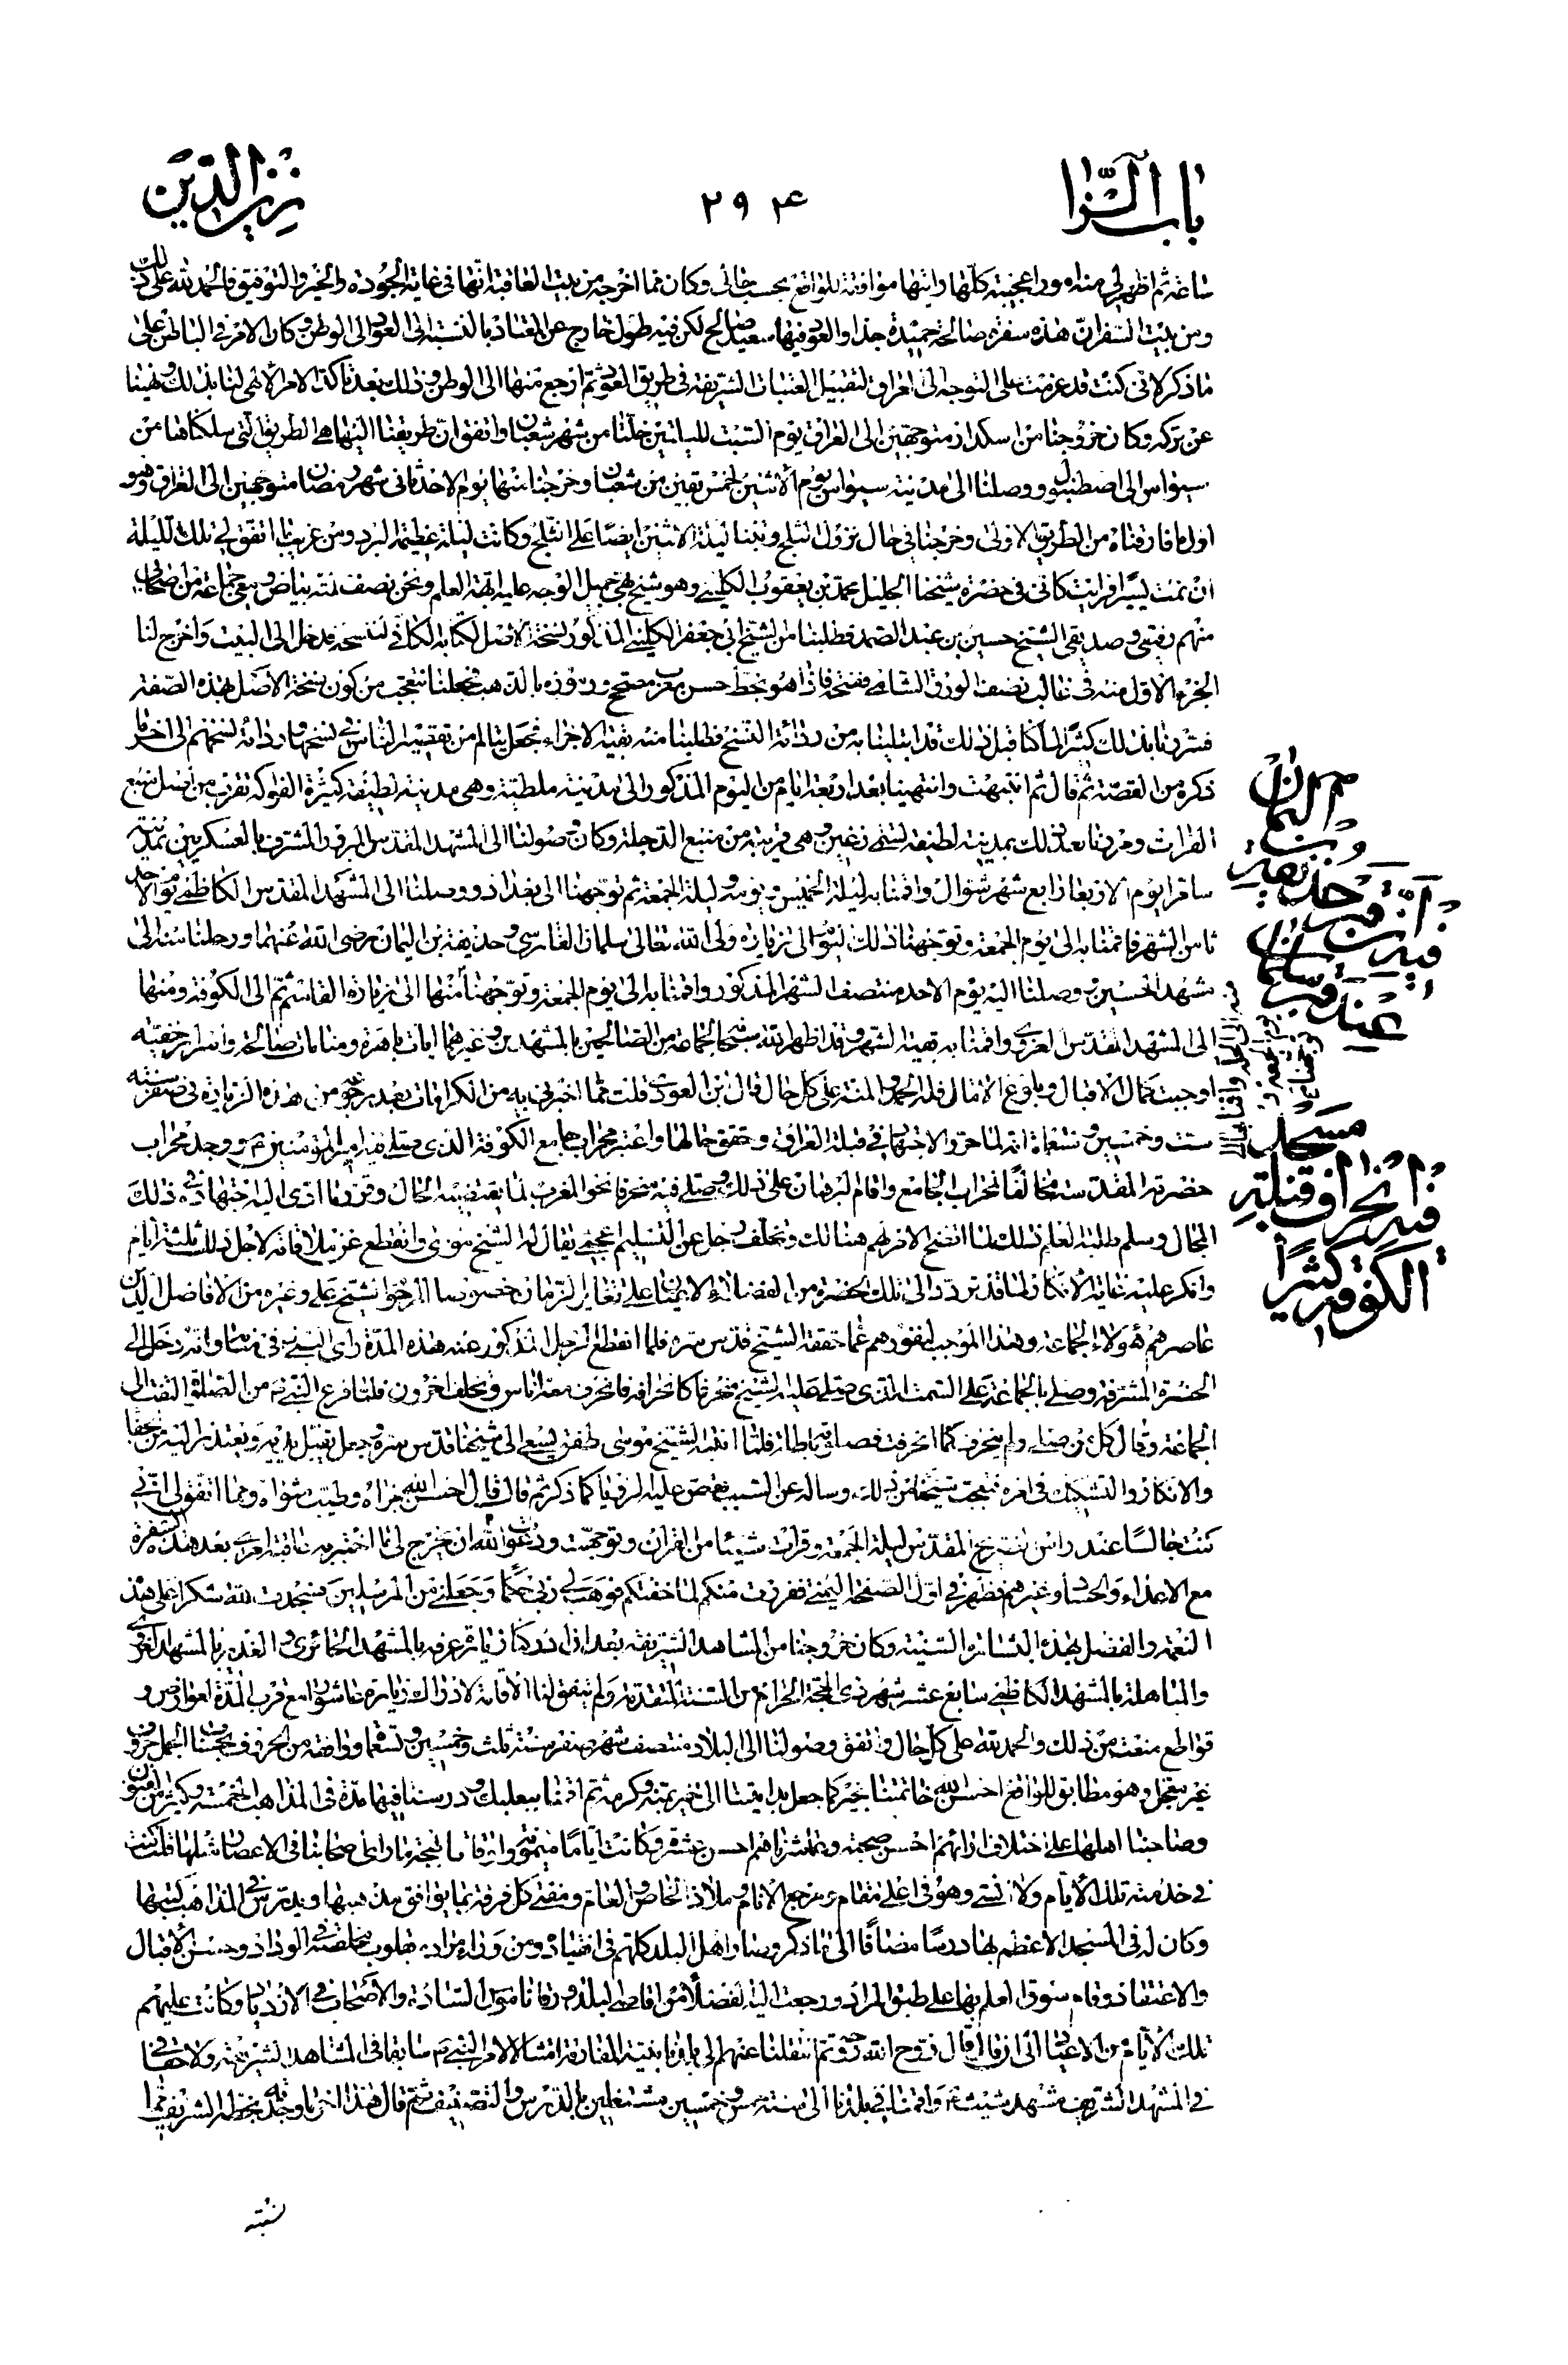 باب الزا
٢٩٤
زين الدين
ساعة ثم اظهر لي منه امورا عجيبة كلها رايتها موافقة للواقع بحسب حالي وكان مما اخرجه من بيت العاقبة انها في غاية الجودة والخير والتوفيق فالحمد لله على ذلك
ومن بيت السفر ان هذه سفرة صالحة حميدة جدا والعود فيها سعيد صالح لكن فيه طول خارج عن المعتاد بالنسبة الى العود الى الوطن وكان الامر في الباطن على
ما ذكر لاني كنت قد عزمت على التوجه الى العراق لتقبيل العتبات الشريفة في طريق العود ثم ارجع منها الى الوطن وذلك بعد تاكد الامر الالهي لنا بذلك ونهينا
عن تركه وكان خروجنا من اسكدار متوجهين الى العراق يوم السبت لليلتين خلتا من شهر شعبان واتفق ان طريقنا اليها هي الطريق التي سلكناها من
سيواس الى اصطنبول ووصلنا الى مدينة سيواس يوم الاثنين لخمس بقين من شعبان وخرجنا منها يوم الاحد ثاني شهر رمضان متوجهين الى العراق وهو
اول ما فارقناه من الطريق الاولى وخرجنا في حال نزول الثلج وبتنا ليلة الاثنين ايضا على الثلج وكانت ليلة عظيمة البرد ومن غريب ما اتفق لي تلك الليلة
ان نمت يسيرا فرايت كاني في حضرة شيخنا الجليل محمد بن يعقوب الكليني وهو شيخ بهي جميل الوجه عليه ابهة العلم ونحو نصف لمته بياض ومعي جماعة من اصحابي
منهم رفيقي وصديقي الشيخ حسين بن عبد الصمد فطلبنا من الشيخ ابي جعفر الكليني المذكور نسخة الاصل لكتابه الكافي لننسخه فدخل الى البيت واخرج لنا
الجزء الاول منه في قالب نصف الورق الشامي ففتحه فاذا هو بخط حسن معرب مصحح ورموزه بالذهب فجعلنا نتعجب من كون نسخة الاصل بهذه الصفة
فسررنا بذلك كثيرا لما كنا قبل ذلك قد ابتلينا به من رداءة النسخ فطلبنا منه بقية الاجزاء فجعل يتالم من تقصير الناس في نسخها ورداءة نسخهم الى اخر ما
ذكره من القصة ثم قال ثم انتبهت وانتهينا بعد اربعة ايام من اليوم المذكور الى مدينة ملطية وهي مدينة لطيفة كثيرة الفواكه تقرب من اصل منبع
الفرات ومررنا بعد ذلك بمدينة لطيفة تسمى زغين وهي قريبة من منبع الدجلة وكان وصولنا الى المشهد المقدس المبرور المشرف بالعسكريين بمدينة
سامرا يوم الاربعا رابع شهر شوال واقمنا به ليلة الخميس ويومه وليلة الجمعة ثم توجهنا الى بغداد ووصلنا الى المشهد المقدس الكاظمي يوم الاحد
ثامن الشهر فاقمنا به الى يوم الجمعة وتوجهنا ذلك اليوم الى زيارة ولي الله تعالى سلمان الفارسي وحذيفة بن اليمان رضي الله عنهما ورحلنا منه الى
مشهد الحسين ووصلنا اليه يوم الاحد منتصف الشهر المذكور واقمنا به الى يوم الجمعة وتوجهنا منها الى زيارة القاسم ثم الى الكوفة ومنها
الى المشهد المقدس الغروي واقمنا به بقية الشهر وقد اظهر الله سبحانه لجماعة من الصالحين بالمشهدين وغيرهما ايات باهرة ومنامات صالحة واسرار خفية
اوجبت كمال الاقبال وبلوغ الامال فله الحمد والمنة على كل حال قال ابن العودي قلت مما اخبرني به من الكرامات بعد رجوعه من هذه الزيارة في صفر سنة
ست وخمسين وتسعمائة انه لما حرر الاجتهاد في قبلة العراق وحقق حالها واعتبر محراب جامع الكوفة الذي صلى فيه امير المؤمنين ووجد محراب
حضرته المقدسة مخالفا لمحراب الجامع واقام البرهان على ذلك وصلى فيه منحرفا نحو المغرب لما يقتضيه الحال وقرر ما ادى اليه اجتهاده في ذلك
المجال وسلم طلبة العلم ذلك لما اتضح الامر لهم هنالك وتخلف رجل عن التسليم اعجمي يقال له الشيخ موسى وانقطع عن ملاقاته لاجل ذلك ثلثة ايام
وانكر عليه غاية الانكار لما قد تردد الى تلك الحضرة من الفضلاء الاعيان على تغاير الزمان خصوصا المرحوم الشيخ علي وغيره من الافاضل الذين
عاصرهم هؤلاء الجماعة وهذا الموجب لنفورهم عما حققه الشيخ قدس سره فلما انقطع الرجل المذكور عنه هذه المدة راى النبي في منامه وانه دخل الى
الحضرة المشرفة وصلى بالجماعة على السمت الذي صلى عليه الشيخ منحرفا كانحرافه فانحرف معه اناس وتخلف اخرون فلما فرغ النبي من الصلوة التفت الى
الجماعة وقال كل من صلى ولم ينحرف كما انحرفت فصلاته باطلة فلما انتبه الشيخ موسى طفق يسعى الى شيخنا قدس سره وجعل يقبل يديه ويعتذر اليه من جفاه
والانكار والتشكيك في امره فتعجب شيخنا من ذلك وساله عن السبب فقص عليه الرؤيا كما ذكر ثم قال قال احسن الله جزاه وطيب مثواه ومما اتفق لي اني
كنت جالسا عند راس الضريح المقدس ليلة الجمعة وقرات شيئا من القران وتوجهت ودعوت الله ان يخرج لي ما اختبر به عاقبة امري بعد هذه السفرة
مع الاعداء والحساد وغيرهم فظهر في اول الصفحة اليمنى ففررت منكم لما خفتكم فوهب لي ربي حكما وجعلني من المرسلين فسجدت لله شكرا على هذه
النعمة والفضل بهذه البشارة السنية وكان خروجنا من المشاهد الشريفة بعد ان ادركنا زيارة عرفة بالمشهد الحائري والغدير بالمشهد الغروي
والمباهلة بالمشهد الكاظمي سابع عشر شهر ذي الحجة الحرام من السنة المتقدمة ولم يتفق لنا الاقامة لادراك زيارة عاشورا مع قرب المدة لعوارض و
قواطع منعت من ذلك والحمد لله على كل حال واتفق وصولنا الى البلاد منتصف شهر صفر سنة ثلث وخمسين وتسعمائة ووافقه من الحروف بحساب الجمل حروف
خير معجل وهو مطابق للواقع احسن الله خاتمتنا بخير كما جعل بدايتنا الى خير بمنه وكرمه ثم اقمنا ببعلبك ودرسنا فيها مدة في المذاهب الخمسة وكثير من الفنون
وصاحبنا اهلها على اختلاف ارائهم احسن صحبة وعاشرناهم احسن عشرة وكانت اياما ميمونة واوقاتا بهجة ما راى اصحابنا في الاعصار مثلها قلت كنت
في خدمته تلك الايام ولا انسى وهو في اعلى مقام ومرجع الانام وملاذ الخاص والعام ومفتي كل فرقة بما يوافق مذهبها ويدرس في المذاهب كتبها
وكان له في المسجد الاعظم بها درسا مضافا الى ما ذكر وصار اهل البلد كلهم في انقياده ومن وراء مراده بقلوب مخلصة في الوداد وحسن الاقبال
والاعتقاد وقام سوق العلم بها على طبق المراد ورجعت اليه الفضلاء من اقاصي البلاد ورقى ناموس السادة والاصحاب في الازدياد وكانت عليهم
تلك الايام من الاعياد
في المشهد الشريف مشهد شيث واقمنا في بلدنا الى سنة خمس وخمسين مشتغلين بالدرس والتصنيف ثم قال هذا اخر ما وجد بخطه الشريف
م اليمان
ان قبر حذيفة
عند قبر سلمان
مسجد
انحراف قبلة
الكوفة كثيرا